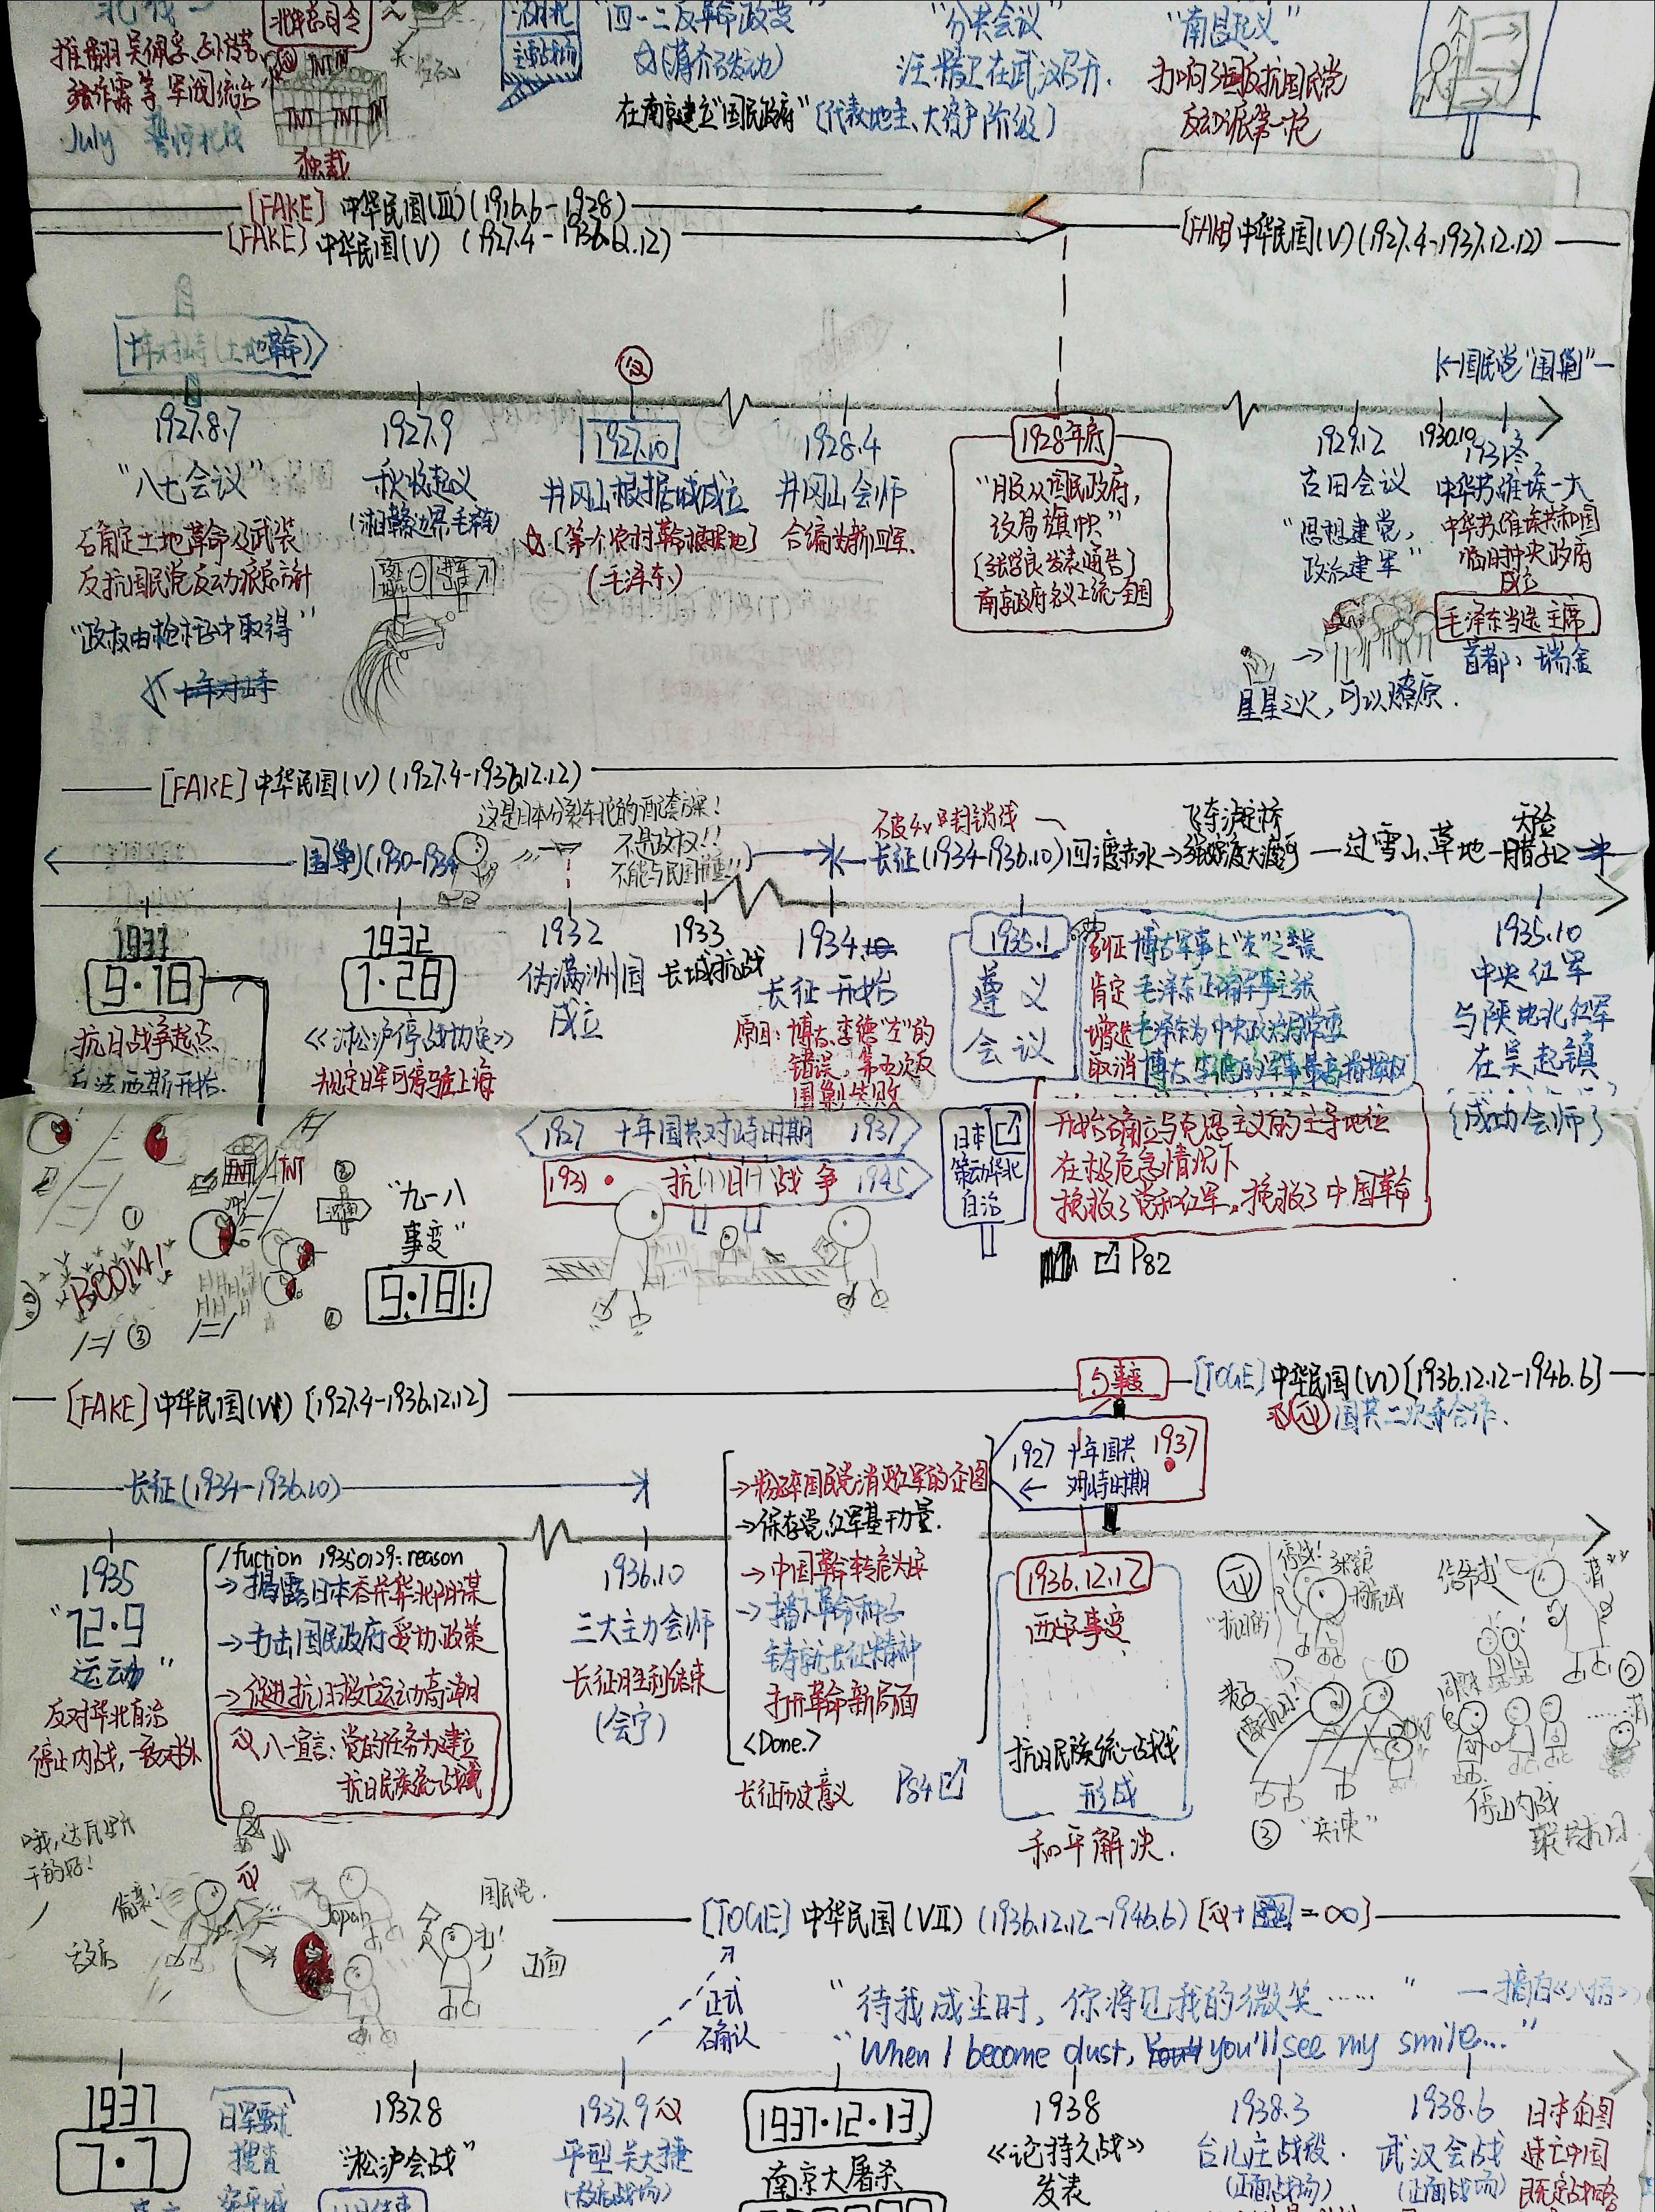 北伐
推翻吴佩孚、孙传芳、
张作霖等军阀统治
July 誓师北伐
北伐总司令
TNT TNT
TNT TNT TNT
独裁
湖北
主战场
"四一二反革命政变"
(蒋介石发动)
在南京建立"国民政府"(代表地主、大资产阶级)
"分共会议"
汪精卫在武汉召开.
"南昌起义"
打响了武装反抗国民党
反动派第一枪
[FAKE] 中华民国(III)(1916.6-1928)
[FAKE] 中华民国(V) (1927.4-1936.12.12)
[FAKE] 中华民国(V)(1927.4-1937.12.12)
十年对峙(土地革命)
国民党"围剿"
1927.8.7
"八七会议"
确定土地革命及武装
反抗国民党反动派总方针
"政权由枪杆中取得"
十年对峙
1927.9
秋收起义
(湘赣边界 毛泽东)
1927.10
井冈山根据地成立
(第一个农村革命根据地)
(毛泽东)
1928.4
井冈山会师
合编为新四军.
1928年底
"服从国民政府,
改易旗帜"
(张学良发表通告)
南京政府名义上统一全国
1929.12
古田会议
"思想建党,
政治建军"
星星之火,可以燎原.
1930.10
1931冬
中华苏维埃一大
中华苏维埃共和国
临时中央政府
成立
毛泽东当选主席
首都:瑞金
[FAKE] 中华民国(V)(1927.4-1937.12.12)
围剿(1930-1934
这是日本分裂东北的配套方案!
不是政权!!
不能与民国重!!
突破4次封锁线
长征(1934-1936.10)四渡赤水→强渡大渡河
飞夺泸定桥
过雪山、草地—腊子口
天险
1931
9·18
抗日战争起点
法西斯开始.
1932
1·28
《淞沪停战协定》
规定日军可停驻在上海
1932
伪满洲国
成立
1933
长城抗战
1934.10
长征开始
原因:博古、李德"左"的
错误,第五次反
围剿失败
1935.1
遵义
会议
纠正 博古军事上"左"之错误
肯定 毛泽东正确军事主张
增选 毛泽东为中央政治局常委
取消 博古、李德的军事最高指挥权
开始确立马克思主义的主导地位
在极危急情况下
挽救了党和红军,挽救了中国革命
P82
1935.10
中央红军
与陕北红军
在吴起镇
(成功会师)
1927 十年国共对峙时期 1937
1931 抗日战争 1945
日本
策动华北
自治
BOOM!
TNT TNT
① ② ③
"九一八
事变"
9·18!
[FAKE] 中华民国(V) [1927.4-1936.12.12]
事变
[TOGE] 中华民国(VI)[1936.12.12-1946.6]
国共二次合作.
长征(1934-1936.10)
1927 十年国共 1937
← 对峙时期
1935
"12·9
运动"
反对华北自治
停止内战,一致对外
/fuction 19350129:reason
→揭露日本吞并华北阴谋
→打击国民政府妥协政策
→促进抗日救亡运动高潮
八一宣言:党的任务为建立
抗日民族统一战线
1936.10
三大主力会师
长征胜利结束
(会宁)
→粉碎国民党消灭红军的企图
→保存党,红军基干力量.
→中国革命转危为安
→播下革命种子
铸就长征精神
打开革命新局面
<Done.>
长征历史意义
P84
1936.12.12
西安事变
抗日民族统一战线
形成
和平解决.
停战!
张学良
杨虎城
"抗日的"
①
②
③ "兵谏"
停止内战
联共抗日
偷袭!
敌后
Japan
国民党.
正面
[TOGE] 中华民国(VII) (1936.12.12-1946.6) [ + =∞]
正式
确认
"待我成尘时,你将见我的微笑……"
"When I become dust, you'll see my smile..."
1937
7·7
日军要求
搜查
宛平城
1937.8
"淞沪会战"
1937.9
平型关大捷
(敌后战场)
1937·12·13
南京大屠杀
1938
《论持久战》
发表
1938.3
台儿庄战役.
(正面战场)
1938.6
武汉会战
(正面战场)
日本企图
速亡中国
既定战略